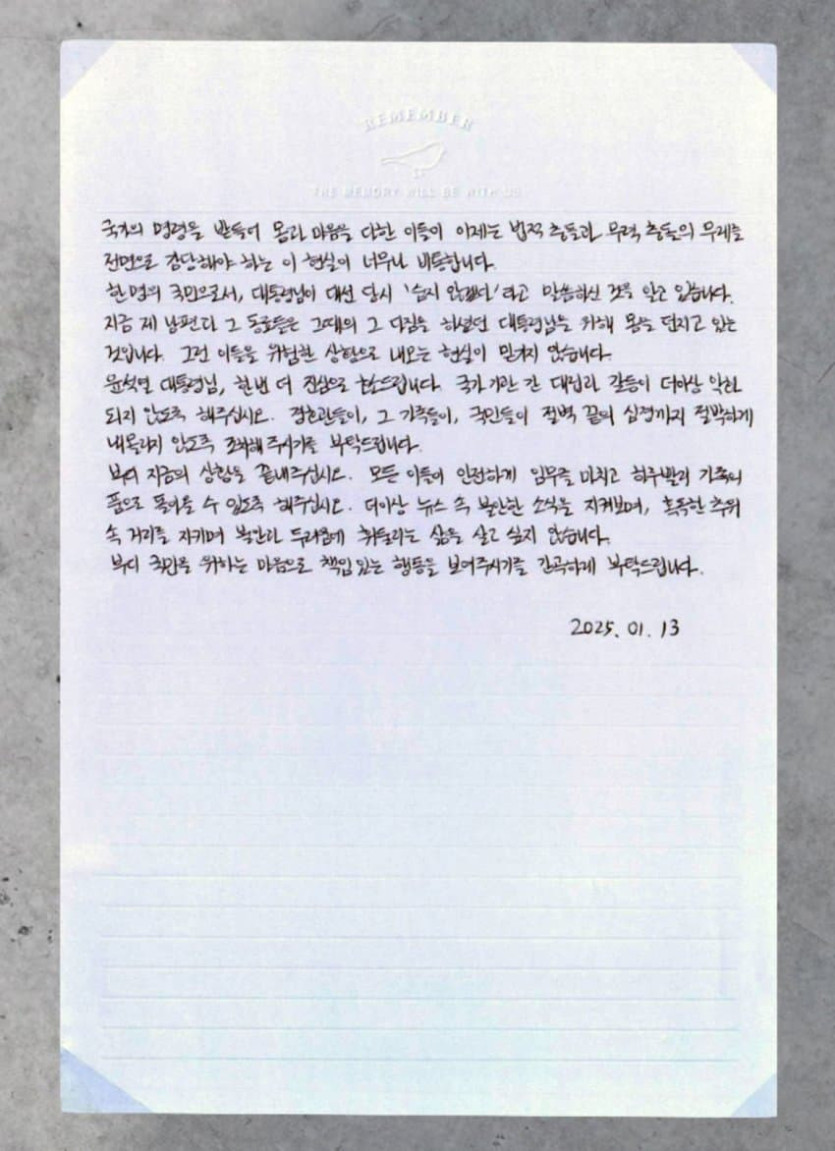 REMEMBER
THE MEMORY WILL BE WITH US
국가의 명령을 받들어 몸과 마음을 다한 이들이 이제는 법적 충돌과 무력 충돌의 무게를
전면으로 감당해야 하는 이 현실이 너무나 비통합니다.
한 명의 국민으로서, 대통령님이 대선 당시 '숨지 않겠다'라고 말씀하신 것을 알고 있습니다.
지금 제 남편과 그 동료들은 그때의 그 다짐을 하셨던 대통령님을 위해 몸을 던지고 있는
것입니다. 그런 이들을 위험한 상황으로 내모는 현실이 믿기지 않습니다.
윤석열 대통령님, 한번 더 진심으로 호소드립니다. 국가기관 간 대립과 갈등이 더이상 악화
되지 않도록 해주십시오. 경호관들이, 그 가족들이, 국민들이 절벽 끝의 심정까지 절박하게
내몰리지 않도록 조치해주시기를 부탁드립니다.
부디 지금의 상황을 끝내주십시오. 모든 이들이 안전하게 임무를 마치고 하루빨리 가족의
품으로 돌아올 수 있도록 해주십시오. 더이상 뉴스 속 불안한 소식을 지켜보며, 혹독한 추위
속 거리를 지키며 불안과 두려움에 휘둘리는 삶을 살고 싶지 않습니다.
부디 국민을 위하는 마음으로 책임있는 행동을 보여주시기를 간곡하게 부탁드립니다.
2025. 01. 13